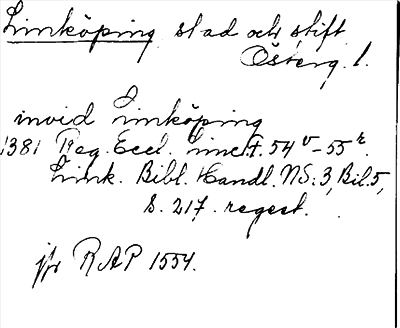 Linköping stad och stift
Österg. l.
invid Linköping
1381 Reg. Eccl. Linc. f. 54 v - 55 r.
Link. Bibl. Handl. NS: 3, Bil. 5,
s. 217. regest.
jfr RAP 1554.